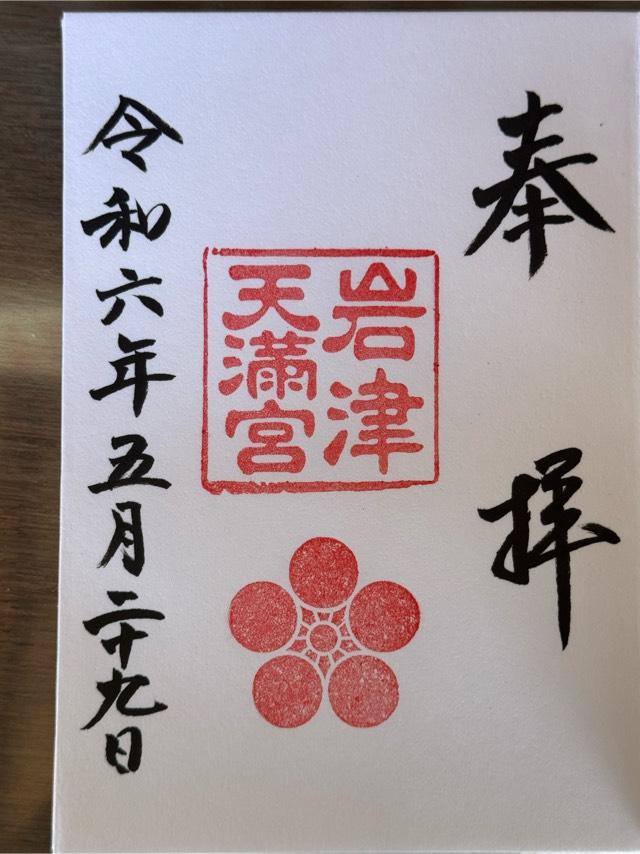 奉拝
岩津
天満宮
令和六年五月二十九日